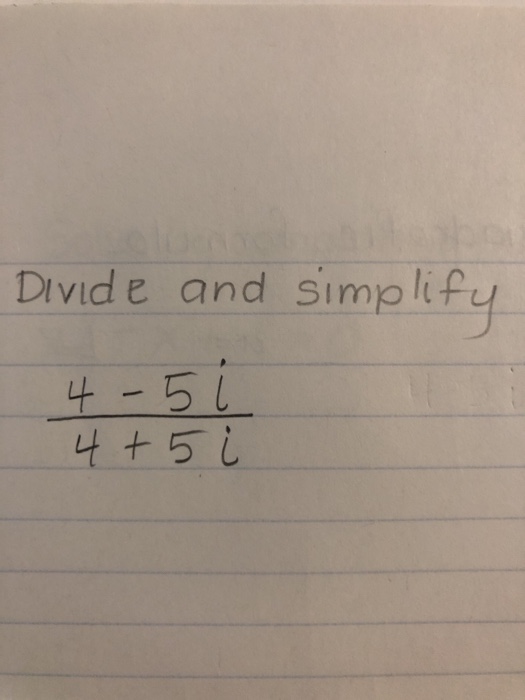 Divide and simplify
4 - 5i
4 + 5i